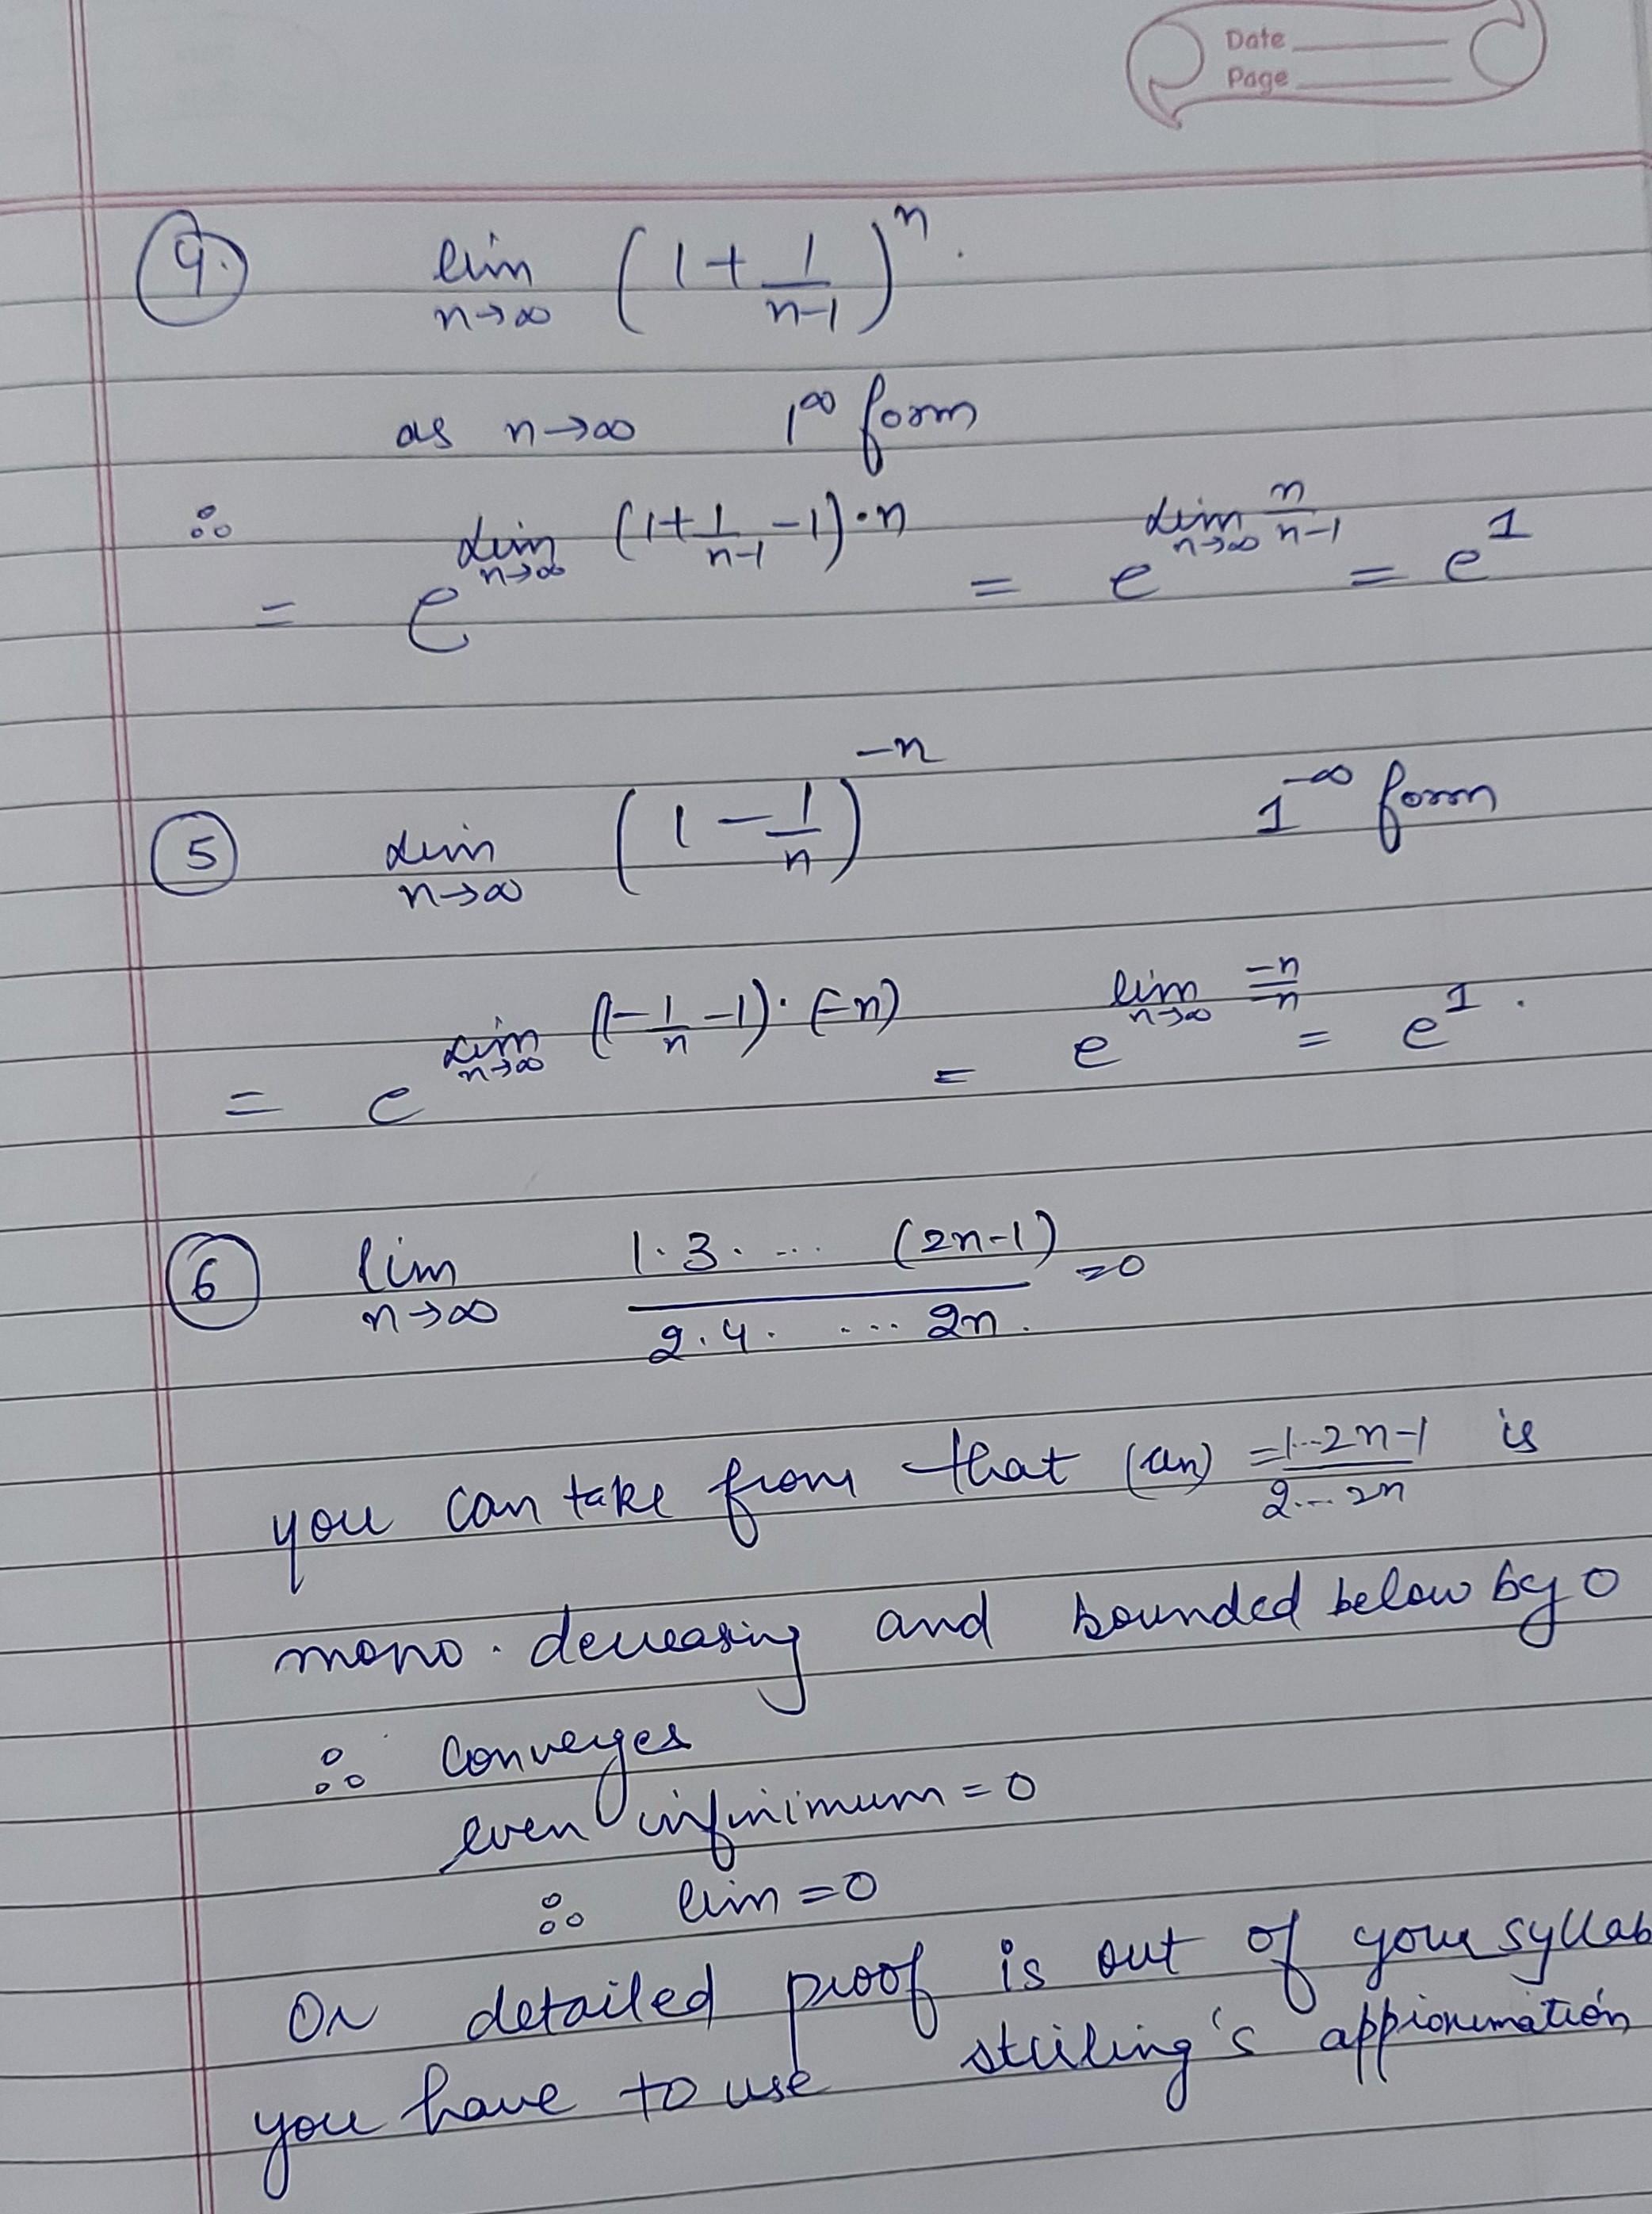 Date
Page
4. lim n→∞ (1 + 1/(n-1))^n.
as n→∞ 1^∞ form
∴ = e^(lim n→∞ (1 + 1/(n-1) - 1)·n) = e^(lim n→∞ n/(n-1)) = e^1
5 lim n→∞ (1 - 1/n)^(-n) 1^(-∞) form
= e^(lim n→∞ (1 - 1/n - 1)·(-n)) = e^(lim n→∞ -n/-n) = e^1.
6 lim n→∞ (1·3· ... (2n-1))/(2·4· ... 2n.) = 0
you can take from that (an) = (1...2n-1)/(2...2n) is
mono. decreasing and bounded below by 0
∴ converges
even infinimum = 0
∴ lim = 0
Or detailed proof is out of your syllab
you have to use stirling's approximation